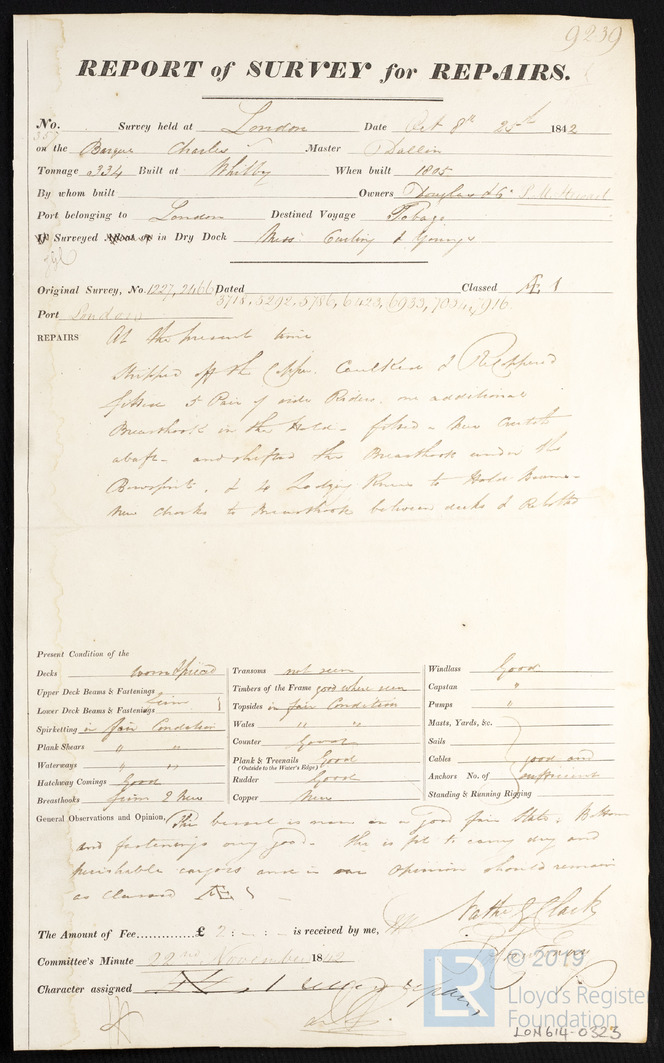 9239
REPORT of SURVEY for REPAIRS.
No. Survey held at London Date Oct 8th 25th 1842
on the Barque Charles Master Dallin
Tonnage 334 Built at Whitby When built 1805
By whom built Owners Douglas & Co
Port belonging to London Destined Voyage Tobago
If Surveyed Afloat or in Dry Dock Mess. Curling & Youngs
Original Survey, No. 1227, 2466 Dated Classed Æ 1
3718, 5292, 5786, 6423, 6933, 7034, 7916
Port London
REPAIRS At the present time
Stripped off the Copper. Caulked & ReCoppered
fitted 5 Pair of side Riders, one additional
Breasthook in the Hold - fitted - New Crutch
abaft - and shifted the Breasthook under the
Bowsprit, & 40 Lodging Knees to Hold Beams -
New Chocks to Breasthook between decks & Rebolted
Present Condition of the
Decks worn & pieced
Upper Deck Beams & Fastenings
Lower Deck Beams & Fastenings firm
Spirketting in fair Condition
Plank Shears " "
Waterways " "
Hatchway Comings Good
Breasthooks firm & New
Transoms not seen
Timbers of the Frame good where seen
Topsides in fair Condition
Wales " "
Counter Good
Plank & Treenails Good
(Outside to the Water's Edge)
Rudder Good
Copper New
Windlass Good
Capstan "
Pumps "
Masts, Yards, &c.
Sails
Cables good and
Anchors No. of sufficient
Standing & Running Rigging
General Observations and Opinion, This vessel is now in a good fair State; Bottom
and fastenings very good. She is fit to carry dry and
perishable cargoes and in our Opinion should remain
as Classed Æ 1
The Amount of Fee.............. £ 2 : - : - is received by me,
Nathl G Clark
Committee's Minute 22nd November 1842
Character assigned Æ 1
© 2019
LR
Lloyd's Register
Foundation
LON614-0323